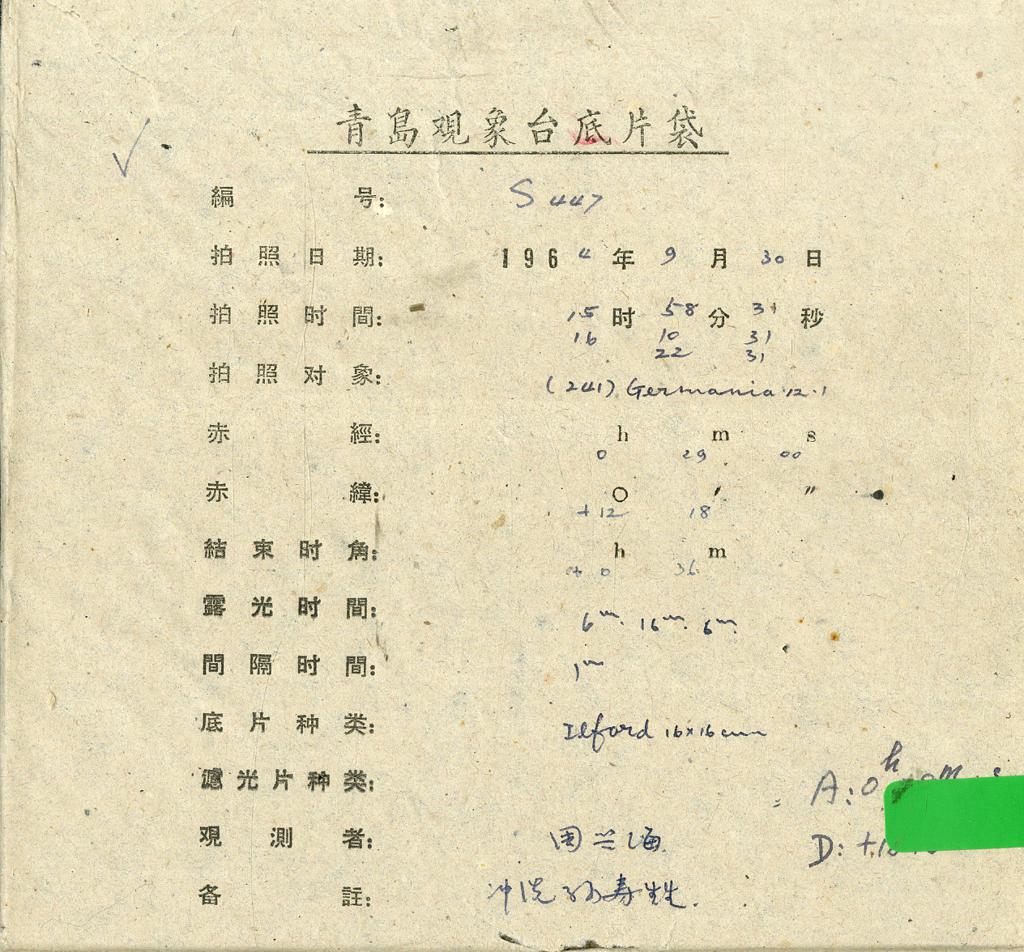 青島观象台底片袋
✓
編 号: S 447
拍照日期: 1964年9月30日
拍照时間: 15时58分31秒
16 10 31
22 31
拍照对象: (241) Germania 12.1
赤 經: h m s
0 29 00
赤 緯: ○ ′ ″
+12 18
結束时角: h m
+ 0 36
露光时間: 6ᵐ. 16ᵐ. 6ᵐ.
間隔时間: 1ᵐ
底片种类: Ilford 16×16cm
濾光片种类:
A: 0ʰ
观測者: 周兰海
D: +
备 註: 冲洗 寿